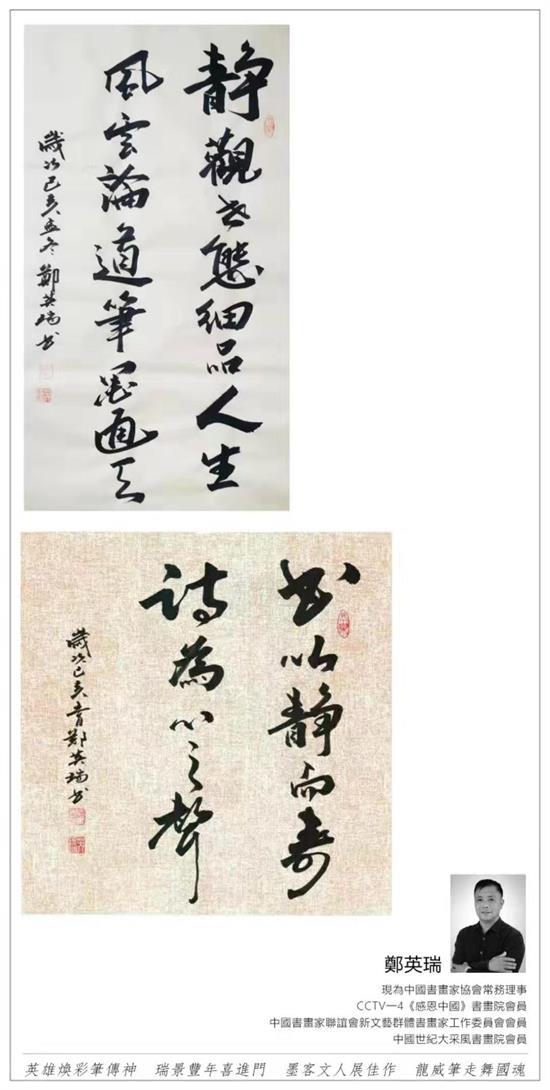 静觀世態細品人生
風雲論道筆墨通天
歲次己亥孟冬鄭英瑞书
书以静而壽
詩為心之聲
歲次己亥春鄭英瑞书
鄭英瑞
現為中國書畫家協會常務理事
CCTV—4《感恩中國》書畫院會員
中國書畫家聯誼會新文藝群體書畫家工作委員會會員
中國世紀大采風書畫院會員
英雄煥彩筆傳神 瑞景豐年喜進門 墨客文人展佳作 龍威筆走舞國魂